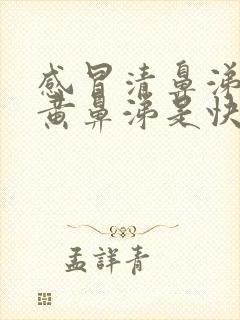 感冒清鼻涕
黄鼻涕是快
孟詳青